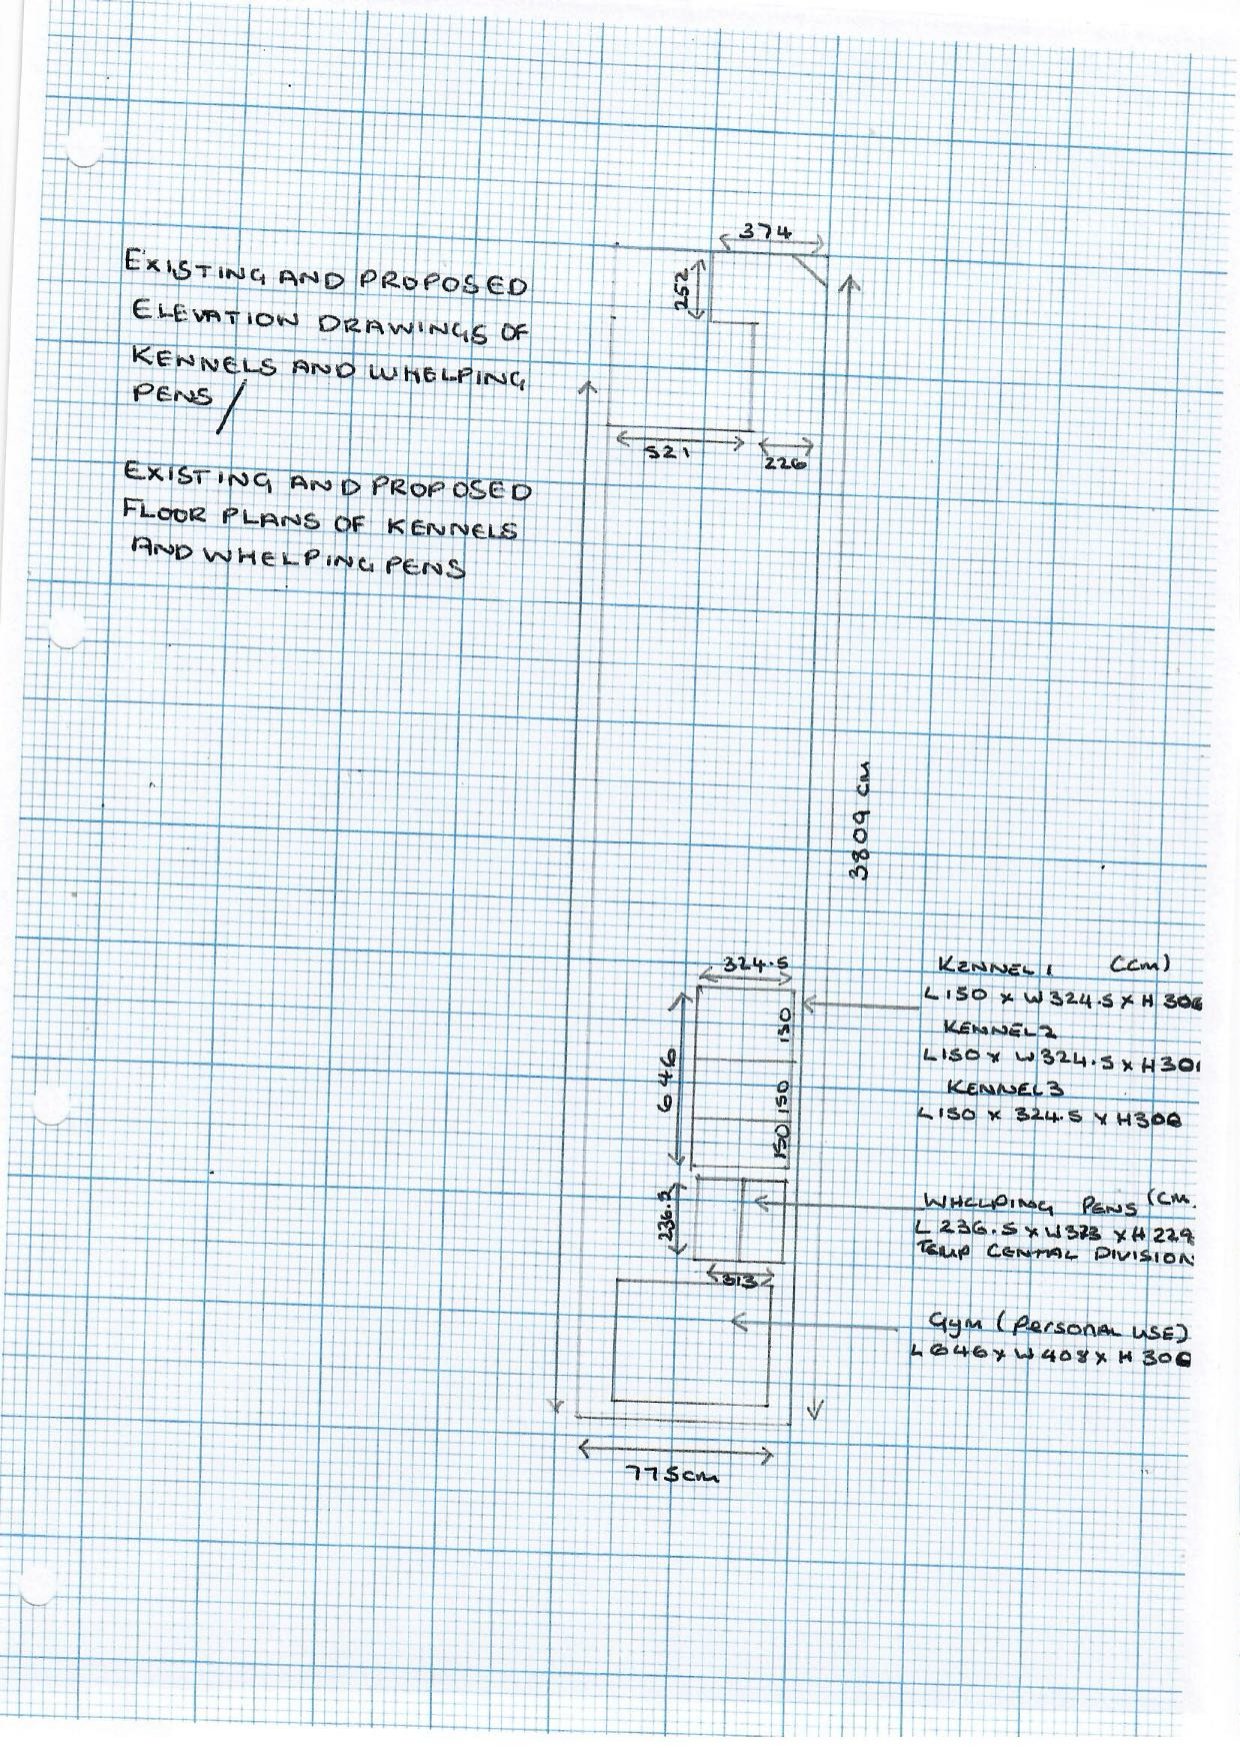 EXISTING AND PROPOSED
ELEVATION DRAWINGS OF
KENNELS AND WHELPING
PENS /
EXISTING AND PROPOSED
FLOOR PLANS OF KENNELS
AND WHELPING PENS
374
252
521
226
3809 cm
324.5
646
150
150
150
KENNEL 1 (cm)
L150 x W324.5 x H 306
KENNEL 2
L150 x W324.5 x H30
KENNEL 3
L150 x 324.5 x H306
236.2
313
WHELPING PENS (CM.
L 236.5 x W323 x H 229
TEMP CENTRAL DIVISION
Gym (PERSONAL USE)
L 646 x W 408 x H 306
775cm